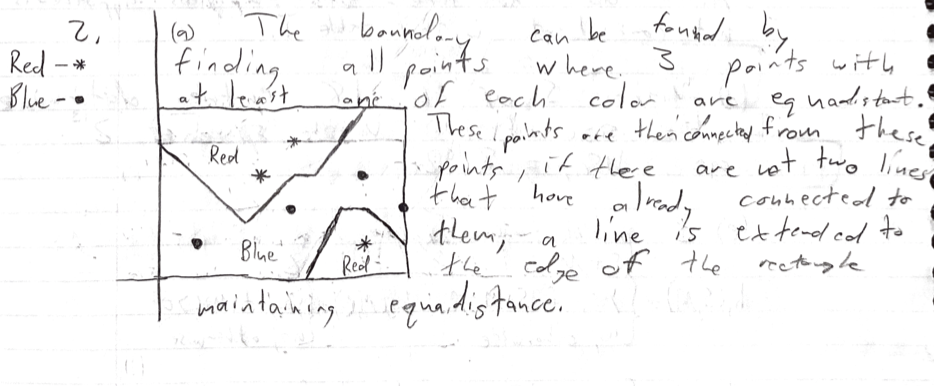 2.
Red - *
Blue - •
(a) The boundary can be found by
finding all points where 3 points with
at least one of each color are equadistant.
These points are then connected from these
points, if there are not two lines
that have already connected to
them, a line is extended to
the edge of the rectangle
maintaining equadistance.
Red
Blue
Red